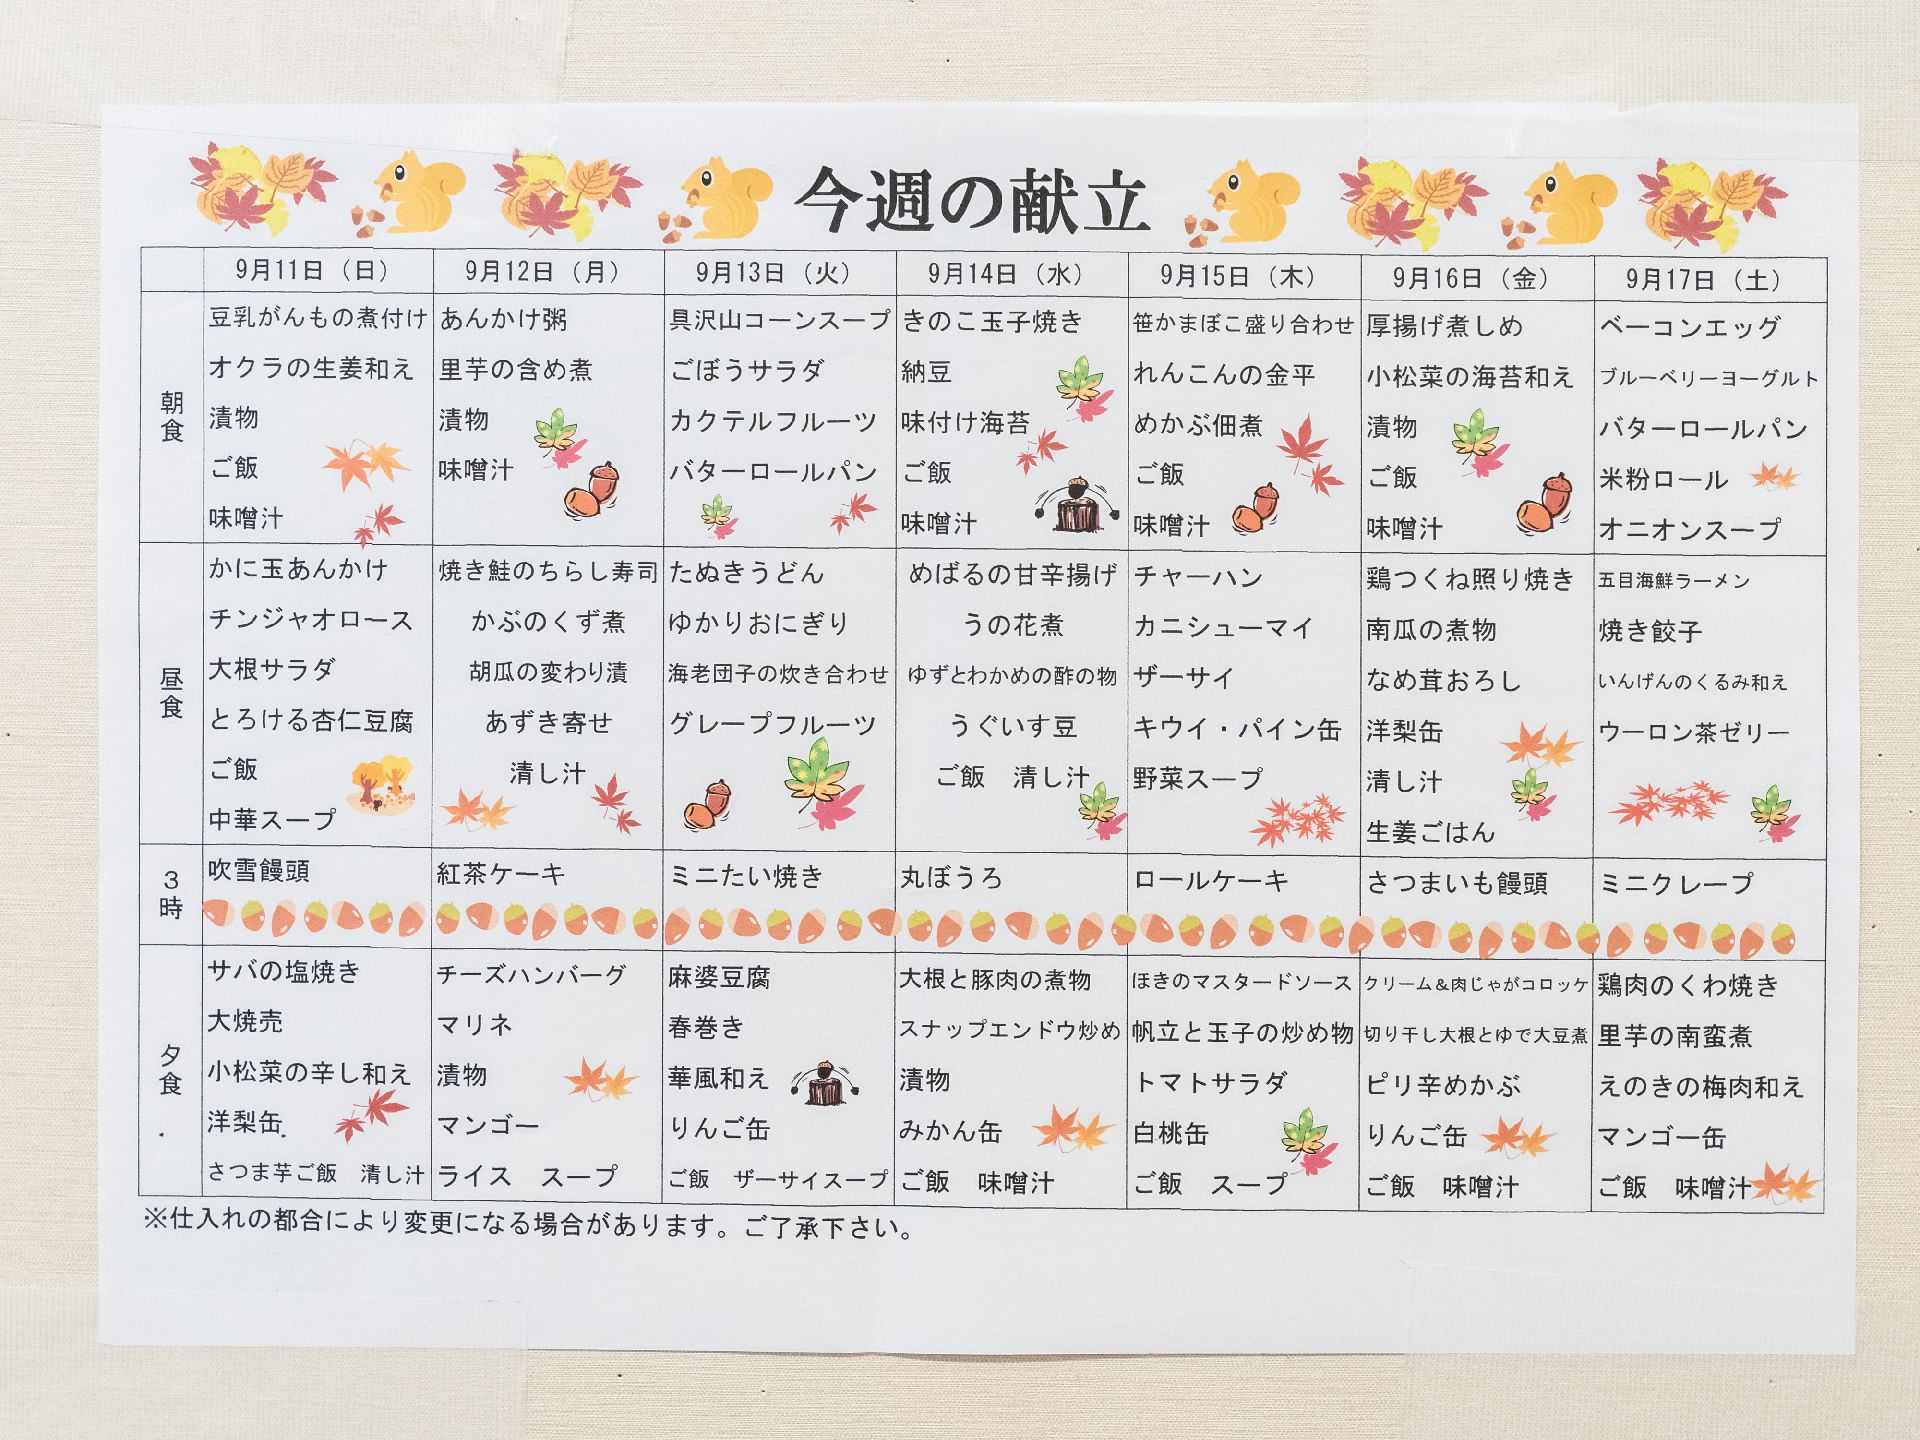 今週の献立
9月11日（日） 9月12日（月） 9月13日（火） 9月14日（水） 9月15日（木） 9月16日（金） 9月17日（土）
朝食
豆乳がんもの煮付け あんかけ粥 具沢山コーンスープ きのこ玉子焼き 笹かまぼこ盛り合わせ 厚揚げ煮しめ ベーコンエッグ
オクラの生姜和え 里芋の含め煮 ごぼうサラダ 納豆 れんこんの金平 小松菜の海苔和え ブルーベリーヨーグルト
漬物 漬物 カクテルフルーツ 味付け海苔 めかぶ佃煮 漬物 バターロールパン
ご飯 味噌汁 バターロールパン ご飯 ご飯 ご飯 米粉ロール
味噌汁 味噌汁 味噌汁 味噌汁 オニオンスープ
昼食
かに玉あんかけ 焼き鮭のちらし寿司 たぬきうどん めばるの甘辛揚げ チャーハン 鶏つくね照り焼き 五目海鮮ラーメン
チンジャオロース かぶのくず煮 ゆかりおにぎり うの花煮 カニシューマイ 南瓜の煮物 焼き餃子
大根サラダ 胡瓜の変わり漬 海老団子の炊き合わせ ゆずとわかめの酢の物 ザーサイ なめ茸おろし いんげんのくるみ和え
とろける杏仁豆腐 あずき寄せ グレープフルーツ うぐいす豆 キウイ・パイン缶 洋梨缶 ウーロン茶ゼリー
ご飯 清し汁 ご飯 清し汁 野菜スープ 清し汁
中華スープ 生姜ごはん
3時
吹雪饅頭 紅茶ケーキ ミニたい焼き 丸ぼうろ ロールケーキ さつまいも饅頭 ミニクレープ
夕食
サバの塩焼き チーズハンバーグ 麻婆豆腐 大根と豚肉の煮物 ほきのマスタードソース クリーム&肉じゃがコロッケ 鶏肉のくわ焼き
大焼売 マリネ 春巻き スナップエンドウ炒め 帆立と玉子の炒め物 切り干し大根とゆで大豆煮 里芋の南蛮煮
小松菜の辛し和え 漬物 華風和え 漬物 トマトサラダ ピリ辛めかぶ えのきの梅肉和え
洋梨缶 マンゴー りんご缶 みかん缶 白桃缶 りんご缶 マンゴー缶
さつま芋ご飯 清し汁 ライス スープ ご飯 ザーサイスープ ご飯 味噌汁 ご飯 スープ ご飯 味噌汁 ご飯 味噌汁
※仕入れの都合により変更になる場合があります。ご了承下さい。